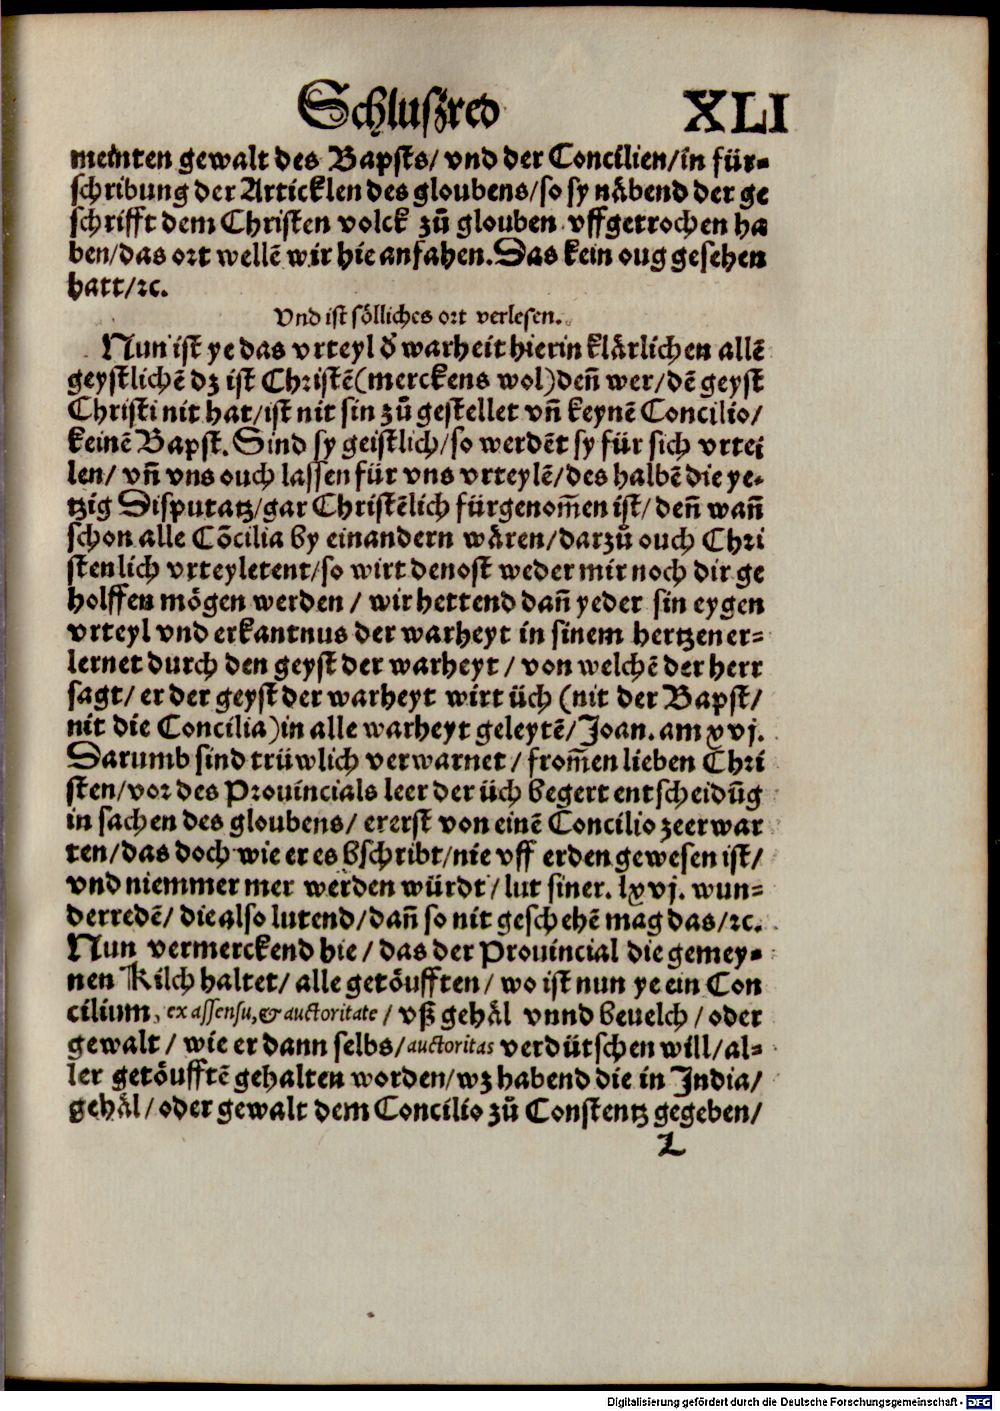 Schluszred XLI
meinten gewalt des Bapsts/ vnd der Concilien/in für-
schribung der Articklen des gloubens/so sy näbend der ge
schrifft dem Christen volck zů glouben vffgetrochen ha
ben/das ort wellē wir hie anfahen. Das kein oug gesehen
hatt/ꝛc.
Vnd ist sölliches ort verlesen.
Nun ist ye das vrteyl d̕ warheit hierin klärlichen allē
geystlichē dz ist Christē(merckens wol)deñ wer/dē geyst
Christi nit hat/ist nit sin zů gestellet vñ keynē Concilio/
keinē Bapst. Sind sy geistlich/so werdēt sy für sich vrtei
len/ vñ vns ouch lassen für vns vrteylē/des halbē die ye-
tzig Disputatz/gar Christēlich fürgenom̄en ist/ deñ wañ
schon alle Cōcilia by einandern wären/darzů ouch Chri
stenlich vrteyletent/so wirt denost weder mir noch dir ge
holffen mögen werden / wir hettend dañ yeder sin eygen
vrteyl vnd erkantnus der warheyt in sinem hertzen er-
lernet durch den geyst der warheyt / von welchē der herr
sagt/ er der geyst der warheyt wirt üch (nit der Bapst/
nit die Concilia)in alle warheyt geleytē/Joan. am xvj.
Darumb sind trüwlich verwarnet / from̄en lieben Chri
sten/vor des Prouincials leer der üch begert entscheidūg
in sachen des gloubens/ ererst von einē Concilio zeerwar
ten/das doch wie er es bschribt/nie vff erden gewesen ist/
vnd niemmer mer werden würdt/ lut siner. lxvj. wun-
derredē/ die also lutend/dañ so nit geschehē mag das/ꝛc.
Nun vermerckend hie / das der Prouincial die gemey-
nen Kilch haltet/ alle getöufften/ wo ist nun ye ein Con
cilium, ex assensu, & auctoritate / vß gehäl vnnd beuelch / oder
gewalt / wie er dann selbs/auctoritas verdütschen will/al-
ler getöufftē gehalten worden/wz habend die in India/
gehäl/oder gewalt dem Concilio zů Constentz gegeben/
L
Digitalisierung gefördert durch die Deutsche Forschungsgemeinschaft - DFG